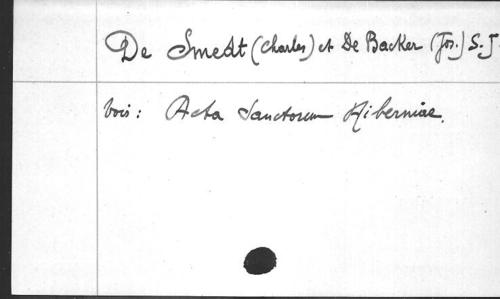 De Smedt (Charles) et De Backer (Jos.) S.J.
Vois: Acta Sanctorum Hiberniae.